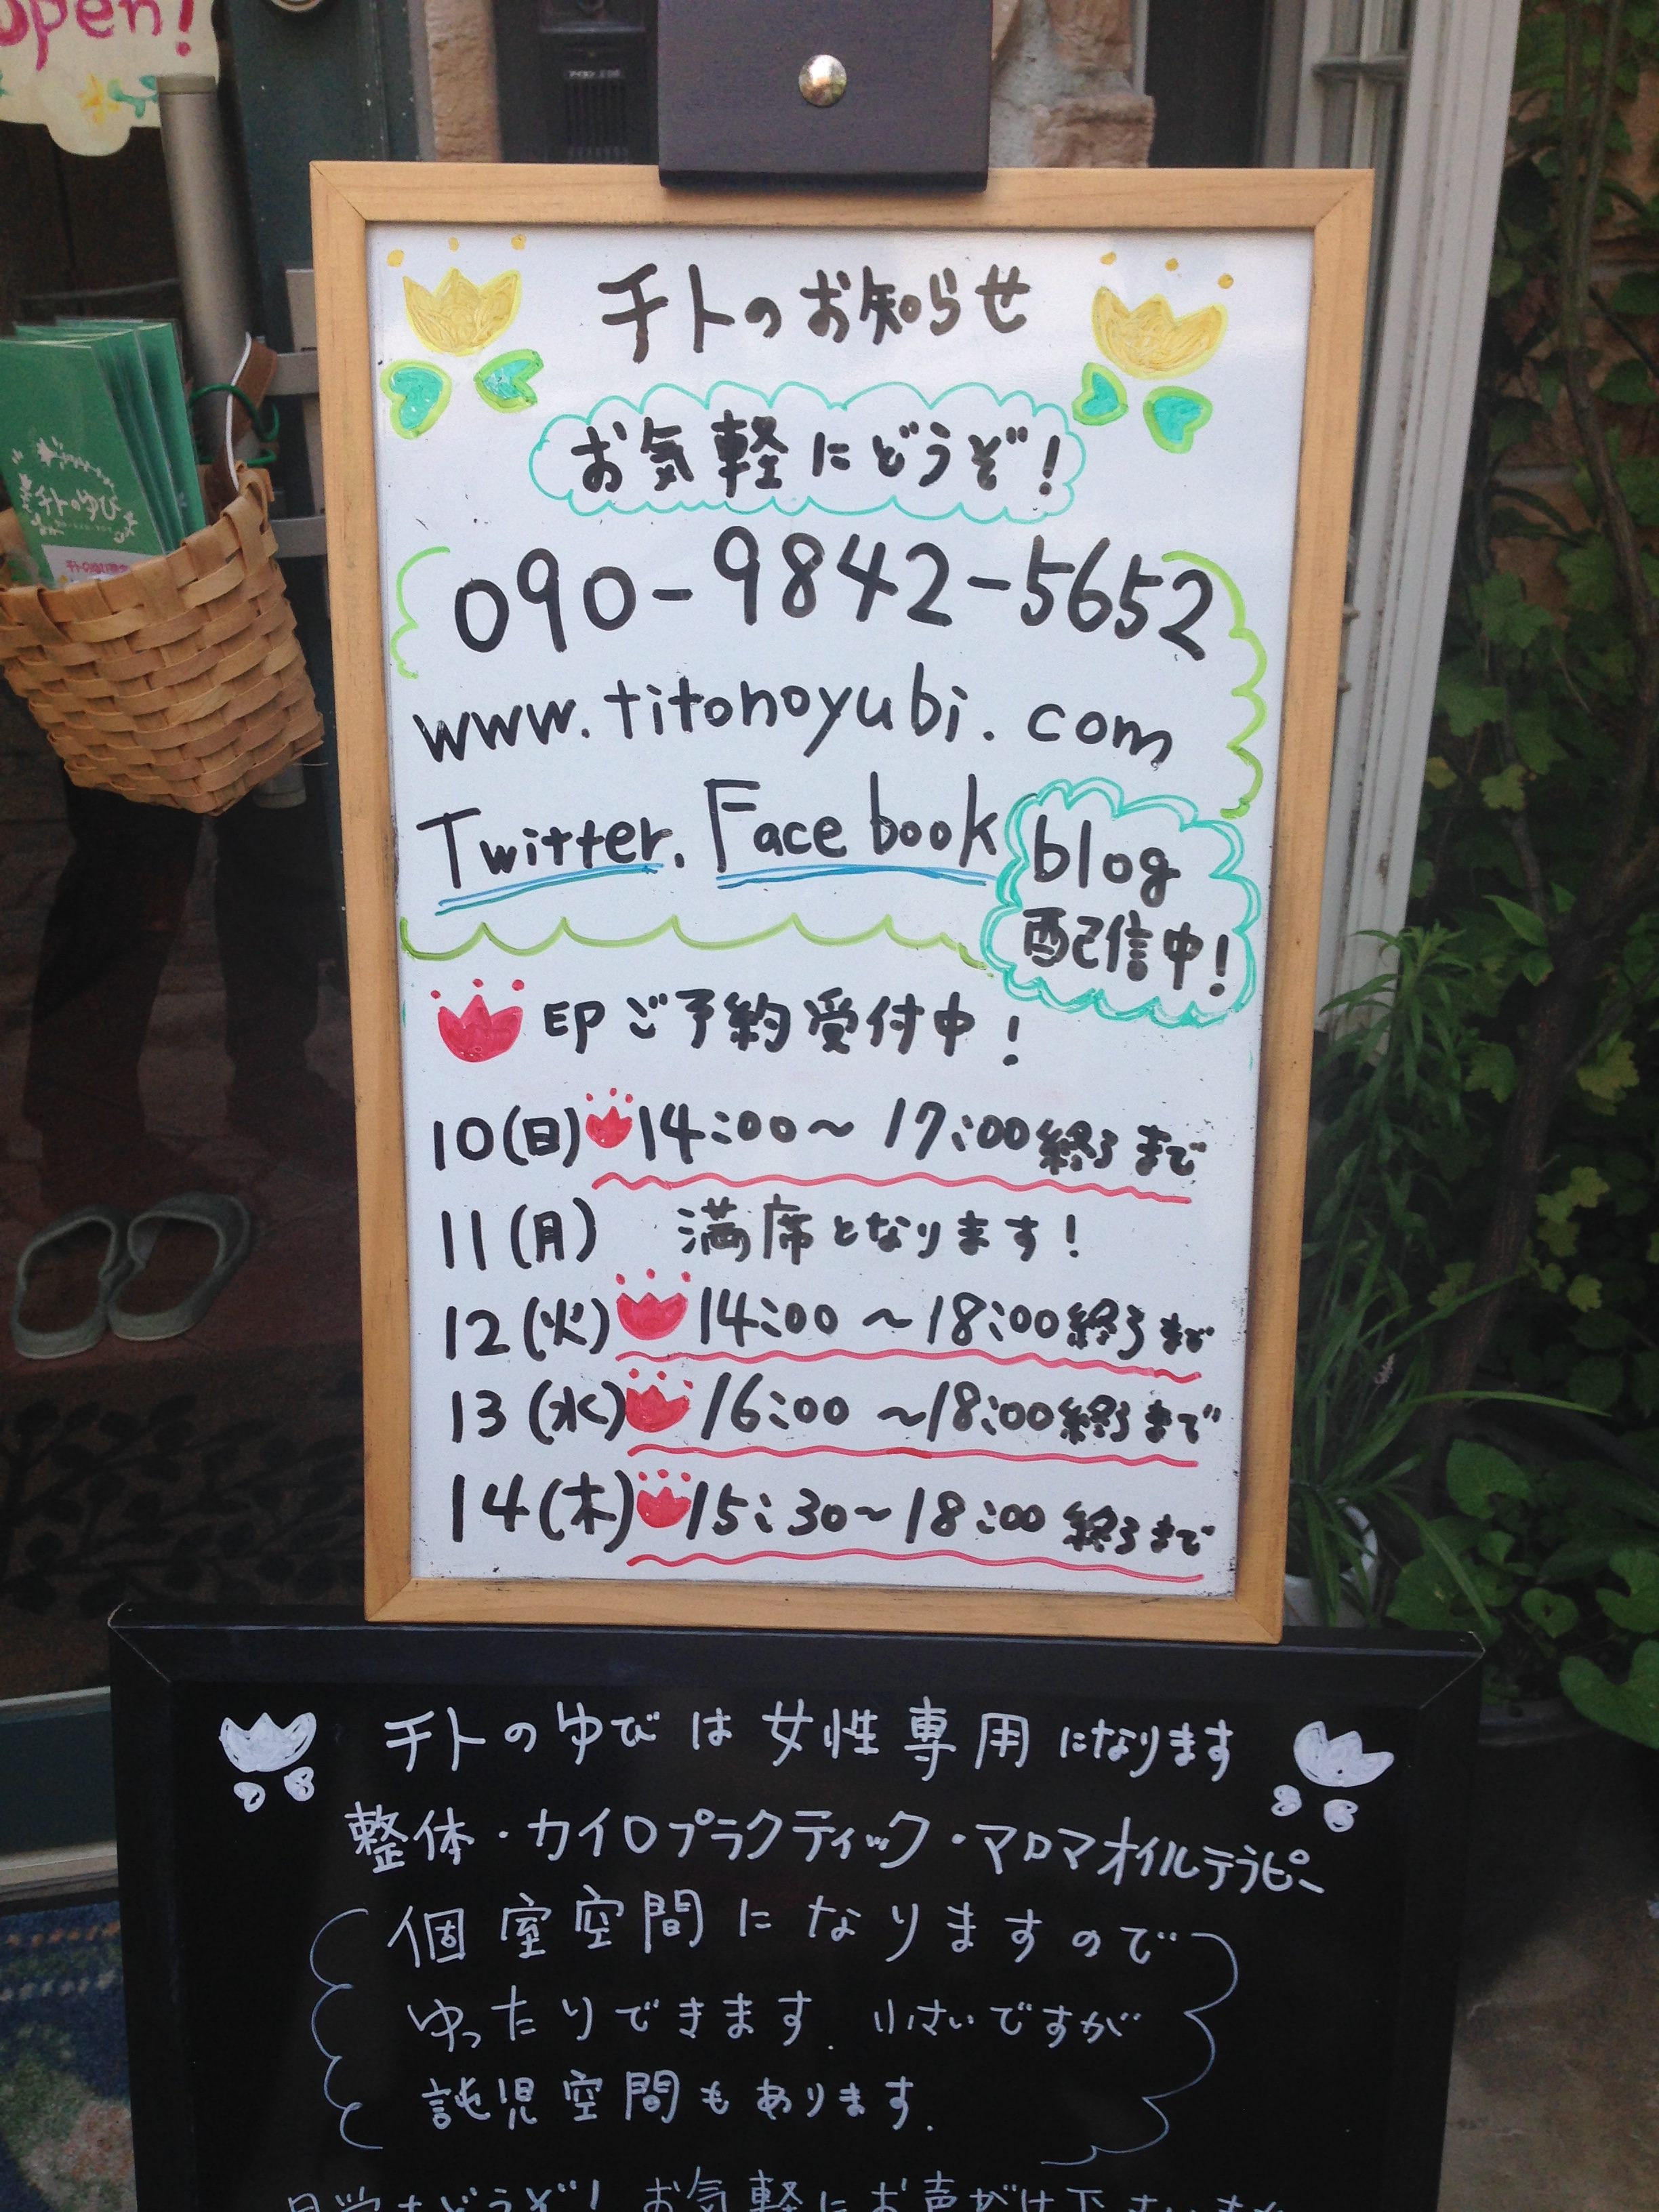 open!
チトのゆび
チトのお知らせ
お気軽にどうぞ!
090-9842-5652
www.titonoyubi.com
Twitter. Facebook
blog
配信中!
印ご予約受付中!
10(日)14:00～17:00終了まで
11(月) 満席となります!
12(火)14:00～18:00終了まで
13(水)16:00～18:00終了まで
14(木)15:30～18:00終了まで
チトのゆびは女性専用になります
整体・カイロプラクティック・アロマオイルテラピー
個室空間になりますので
ゆったりできます.小さいですが
託児空間もあります.
見学もどうぞ!お気軽にお声がけ下さいませ